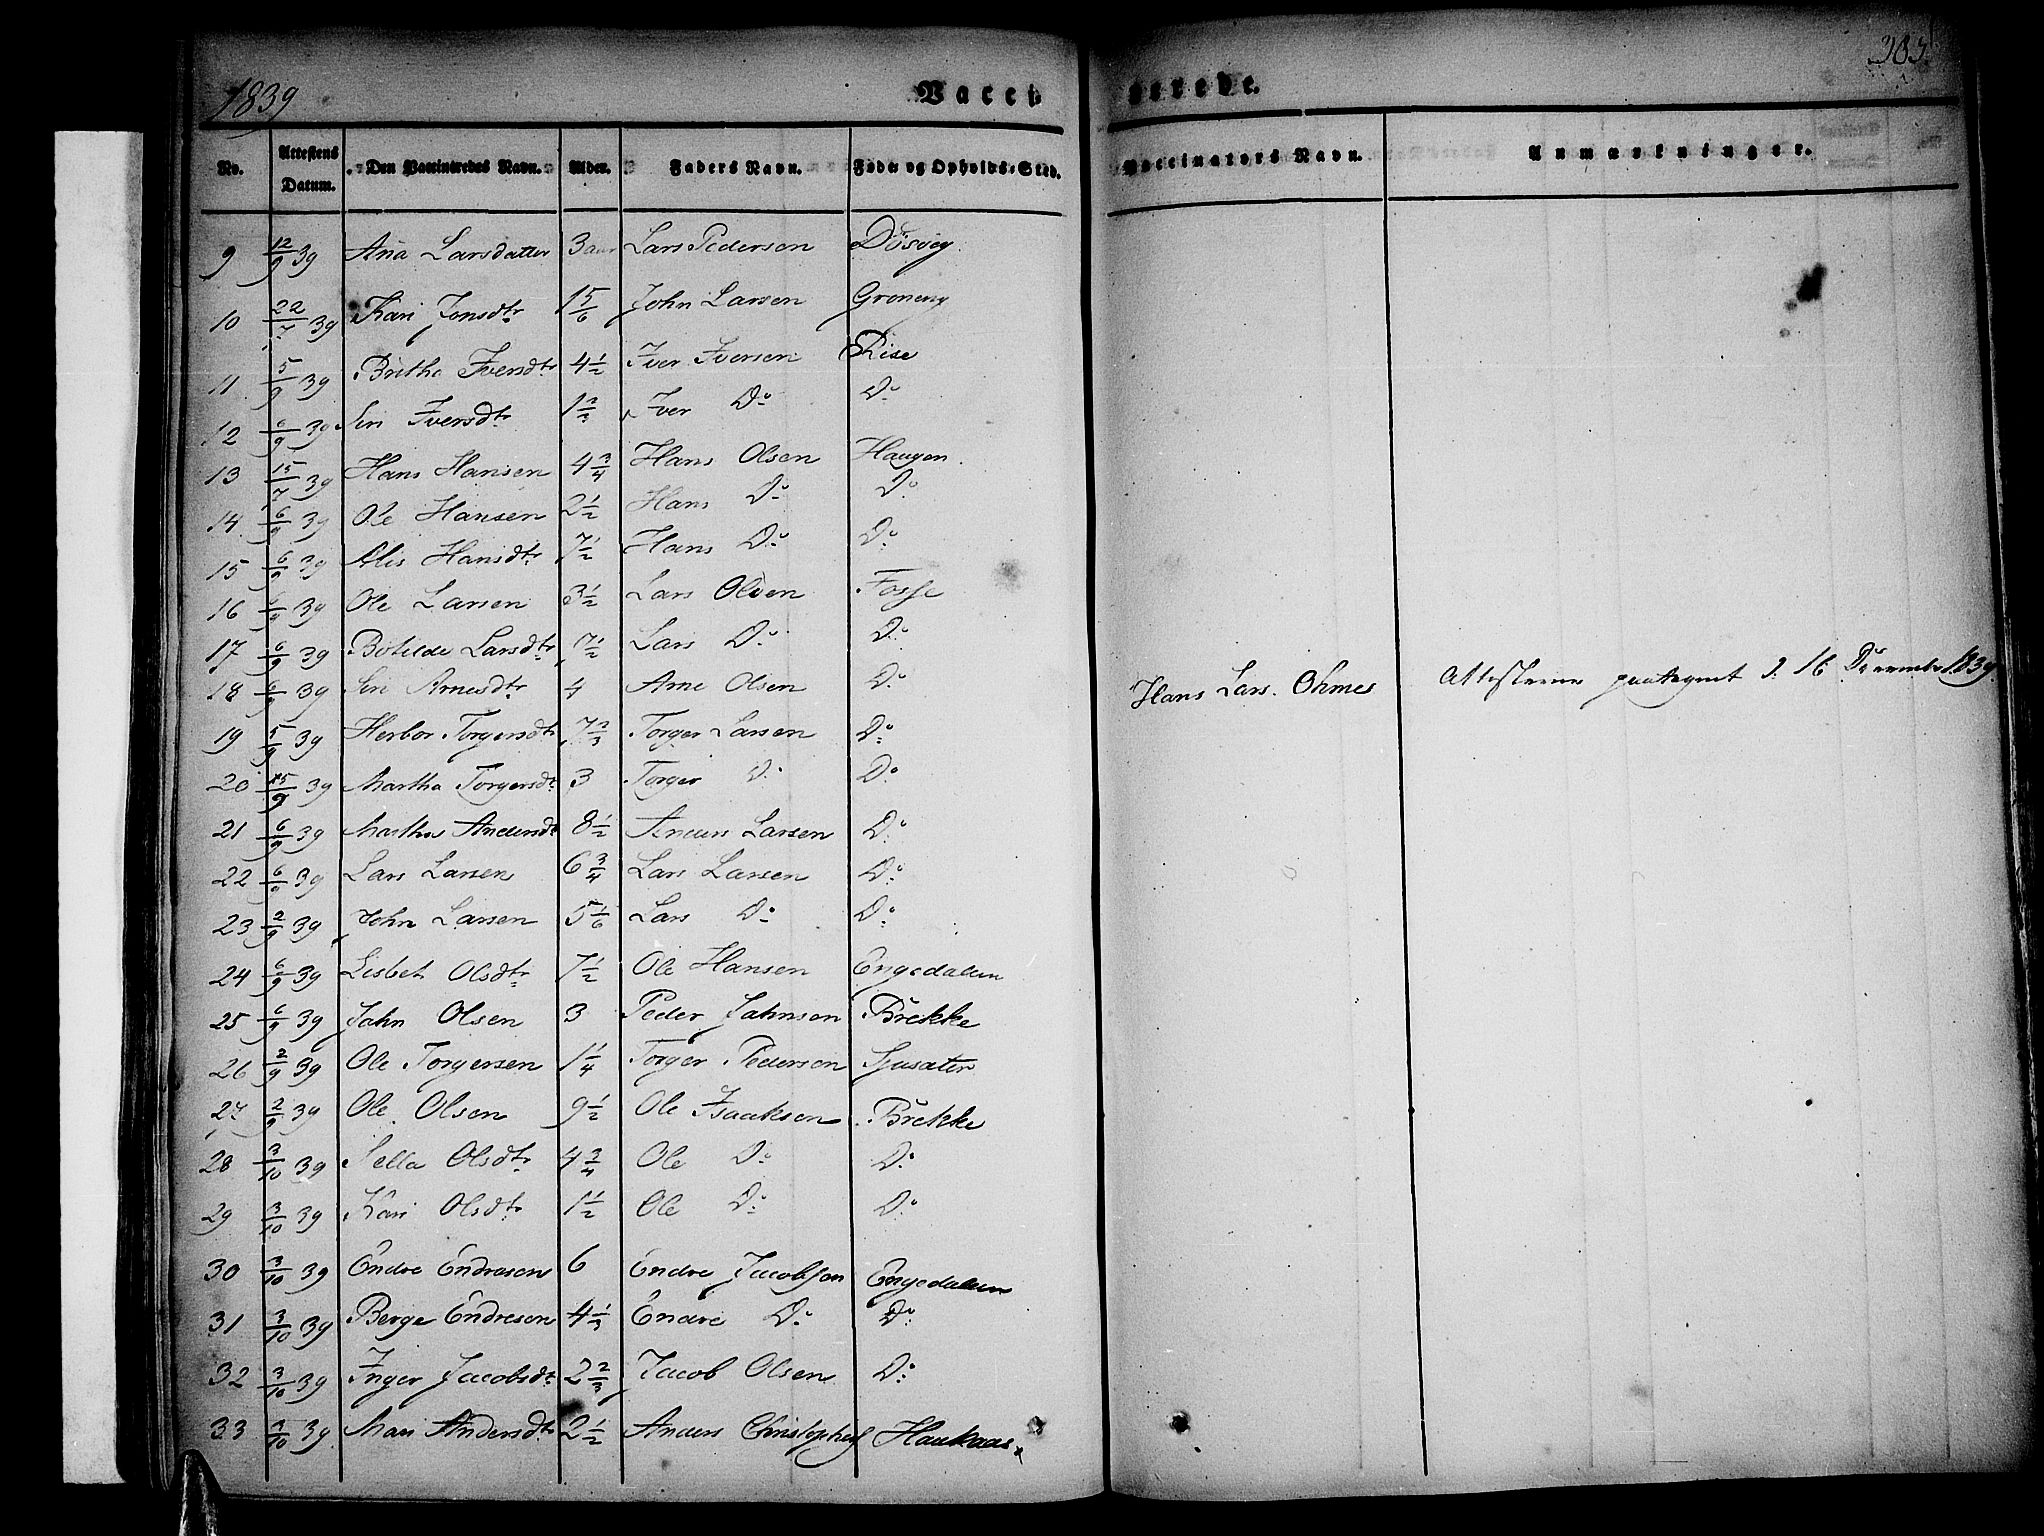 1839
Vacci nerede.
303.
No. Attestens Datum. Den Vaccineredes Navn. Alder. Faders Navn. Føde og Opholds-Sted. Vaccinators Navn. Anmærkninger.
9 12/9 39 Ana Larsdatter 3 aar Lars Pedersen
10 22/7 39 Kari Jonsdtr 1 5/6 John Larsen Gröneng
11 5/9 39 Britha Iversdtr 4 1/2 Iver Iversen Rise
12 6/9 39 Siri Iversdtr 1 2/3 Iver Do Do
13 15/7 39 Hans Hansen 4 3/4 Hans Olsen Haugen
14 6/9 39 Ole Hansen 2 1/2 Hans Do Do
15 6/9 39 Alis Hansdtr 7 1/2 Hans Do Do
16 6/9 39 Ole Larsen 3 1/2 Lars Olsen Fosse
17 6/9 39 Botilde Larsdtr 7 1/2 Lars Do Do
18 6/9 39 Siri Arnesdtr 4 Arne Olsen Do
Hans Lars. Ohmes Attesterne paategnet d: 16 December 1839.
19 5/9 39 Herbor Torgersdtr 7 2/3 Torger Larsen Do
20 15/9 39 Martha Torgersdtr 3 Torger Do Do
21 6/9 39 Martha Andersdtr 8 1/2 Anders Larsen Do
22 6/9 39 Lars Larsen 6 3/4 Lars Larsen Do
23 2/9 39 John Larsen 5 1/6 Lars Do Do
24 6/9 39 Lisbet Olsdtr 7 1/2 Ole Hansen Engedalen
25 6/9 39 John Olsen 3 Peder Johnsen Brekke
26 2/9 39 Ole Torgersen 1 1/4 Torger Pedersen
27 2/9 39 Ole Olsen 9 1/2 Ole Isaaksen Brekke
28 3/10 39 Sella Olsdtr 4 3/4 Ole Do Do
29 3/10 39 Kari Olsdtr 1 1/2 Ole Do Do
30 3/10 39 Endre Endresen 6 Endre Jacobsen Engedalen
31 3/10 39 Berge Endresen 4 1/3 Endre Do Do
32 3/10 39 Inger Jacobsdtr 2 2/3 Jacob Olsen Do
33 3/10 39 Mari Andersdtr 2 1/2 Anders Christophers Haukaas